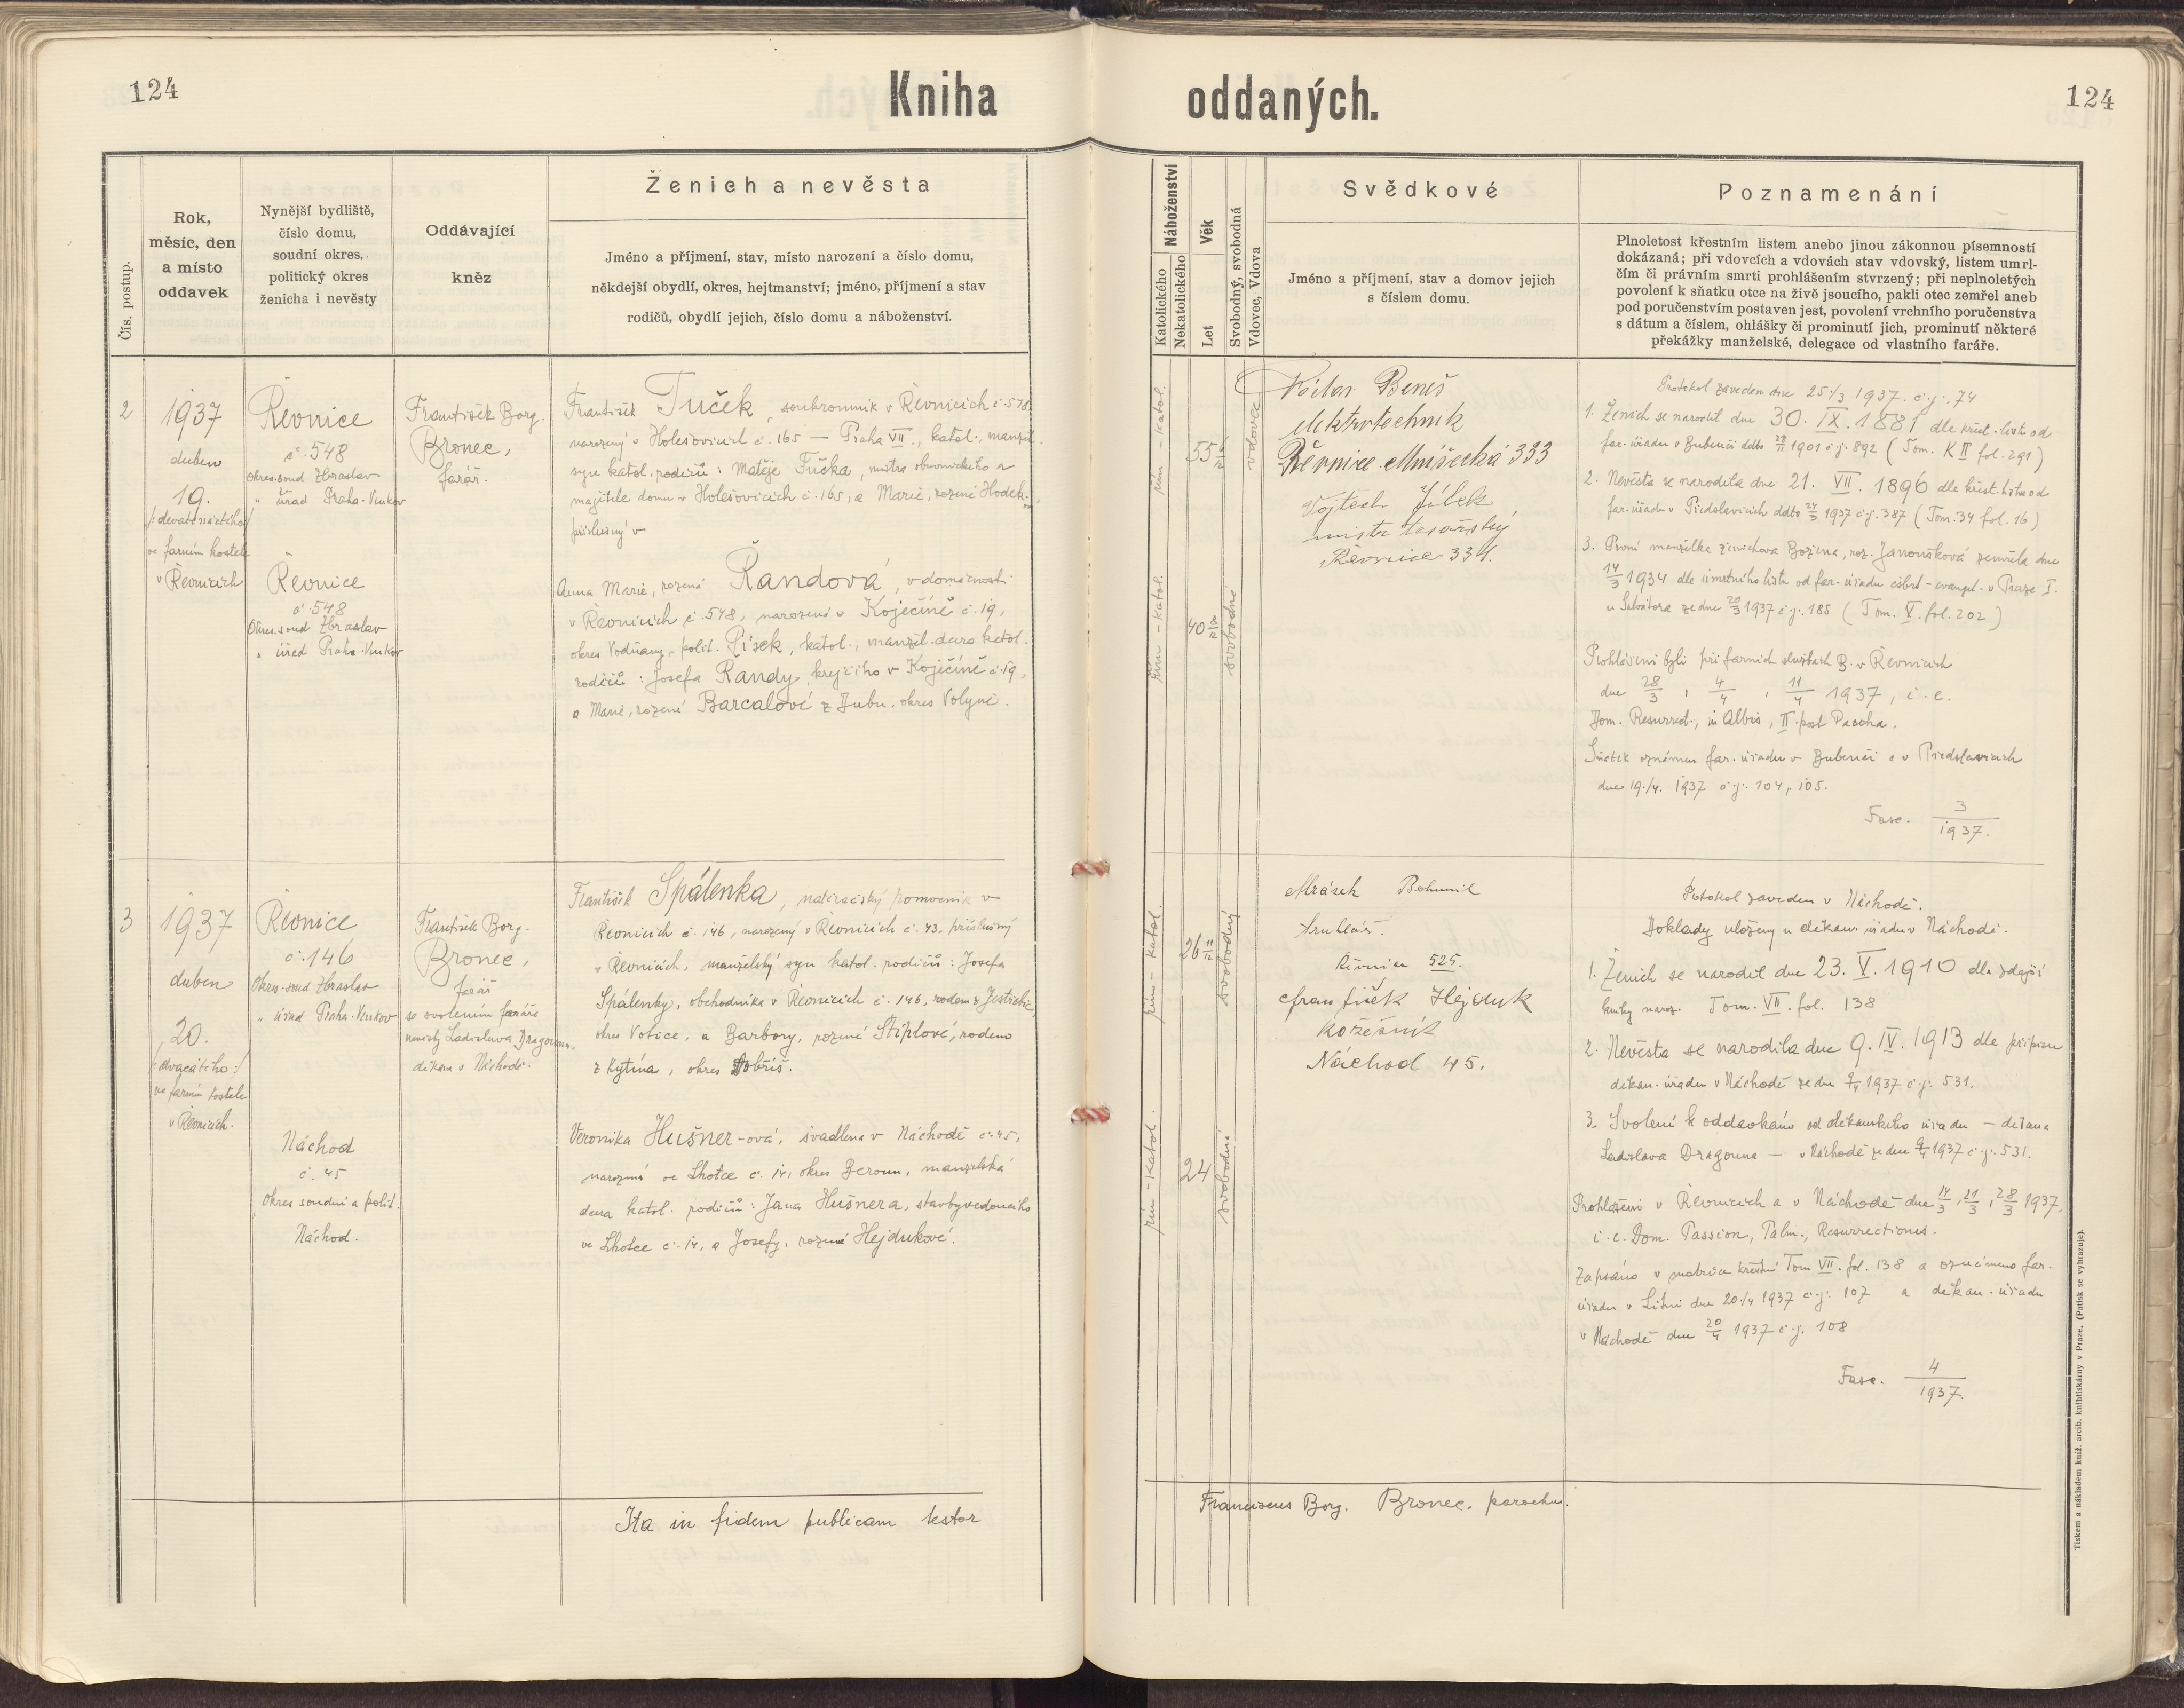 124
Kniha oddaných.
124
Čís. postup.
Rok,
měsíc, den
a místo
oddavek
Nynější bydliště,
číslo domu,
soudní okres,
politický okres
ženicha i nevěsty
Oddávající
kněz
Ženich a nevěsta
Jméno a příjmení, stav, místo narození a číslo domu,
někdejší obydlí, okres, hejtmanství; jméno, příjmení a stav
rodičů, obydlí jejich, číslo domu a náboženství.
Náboženství
Katolického
Nekatolického
Věk
Let
Svobodný, svobodná
Vdovec, Vdova
Svědkové
Jméno a příjmení, stav a domov jejich
s číslem domu.
Poznamenání
Plnoletost křestním listem anebo jinou zákonnou písemností
dokázaná; při vdovcích a vdovách stav vdovský, listem umrl-
čím či právním smrti prohlášením stvrzený; při neplnoletých
povolení k sňatku otce na živě jsoucího, pakli otec zemřel aneb
pod poručenstvím postaven jest, povolení vrchního poručenstva
s dátum a číslem, ohlášky či prominutí jich, prominutí některé
překážky manželské, delegace od vlastního faráře.
2
1937
duben
19.
/:devatenáctého:/
ve farním kostele
v Řevnicích
Řevnice
č. 548
Okres. soud Zbraslav
" úřad Praha-Venkov
"
Řevnice
č. 548
Okres. soud Zbraslav
" úřad Praha-Venkov
František Borg.
Bronec,
farář.
František Tuček, soukromník v Řevnicích č. 578,
narozený v Holešovicích č. 165 — Praha VII., katol., manžel.
syn katol. rodičů: Matěje Tučka, mistra obuvnického a
majitele domu v Holešovicích č. 165, a Marie, rozené Hodek-
příslušný v
Anna Marie, rozená Řandová, v domácnosti
v Řevnicích č. 578, narozená v Koječíně č. 19,
okres Vodňany, polit. Písek, katol., manžel. dcera katol.
rodičů: Josefa Řandy, krejčího v Koječíně č. 19,
a Marie, rozené Barcalové z Dubu, okres Volyně.
řím-katol.
55 6/12
vdovec
řím-katol.
40 8/12
svobodná
Václav Beneš
elektrotechnik
Řevnice Mníšecká 333
Vojtěch Jílek
mistr tesařský
Řevnice 334.
Protokol zaveden dne 25./3 1937. č.j. 74
1. Ženich se narodil dne 30. IX. 1881 dle křest. listu od
far. úřadu v Bubenči ddto 28/11 1901 č.j. 892 (Tom. K II fol. 291)
2. Nevěsta se narodila dne 21. VII. 1896 dle křest. listu od
far. úřadu v Předslavicích ddto 24/3 1937 č.j. 387 (Tom. 34 fol. 16)
3. První manželka ženichova Božena, roz. Janoušková zemřela dne
14/3 1934 dle úmrtního listu od far. úřadu čsbrt-evangel. v Praze I.
u Salvátora ze dne 20/3 1937 č.j. 185 (Tom. V. fol. 202)
Prohlášeni byli při farních službách B. v Řevnicích
dne 28/3, 4/4, 11/4 1937, i. e.
Dom. Resurrect., in Albis, II. post Pascha.
Sňatek oznámen far. úřadu v Bubenči a v Předslavicích
dne 19./4. 1937 č.j. 104, 105.
Fasc. 3/1937.
3
1937
duben
20.
/:dvacátého:/
ve farním kostele
v Řevnicích.
Řevnice
č. 146
Okres-soud Zbraslav
" úřad Praha-Venkov
Náchod
č. 45
Okres soudní a polit.
Náchod.
František Borg.
Bronec,
farář
se svolením faráře
nevěsty Ladislava Dragouna,
děkana v Náchodě.
František Spálenka, natěračský pomocník v
Řevnicích č. 146, narozený v Řevnicích č. 43, příslušný
v Řevnicích, manželský syn katol. rodičů: Josefa
Spálenky, obchodníka v Řevnicích č. 146, rodem z Jestřebic,
okres Votice, a Barbory, rozené Štiplové, rodem
z Kytína, okres Dobříš.
Veronika Hušner-ová, švadlena v Náchodě č. 45,
narozená ve Lhotce č. 14, okres Beroun, manželská
dcera katol. rodičů: Jana Hušnera, stavbyvedoucího
ve Lhotce č. 14, a Josefy, rozené Hejdukové.
řím-katol.
26 11/12
svobodný
řím-katol.
24
svobodná
Mrásek Bohumil
truhlář.
Řevnice 525.
František Hejduk
Kožešník
Náchod 45.
Protokol zaveden v Náchodě.
Doklady uloženy u děkan. úřadu v Náchodě.
1. Ženich se narodil dne 23. V. 1910 dle zdejší
knihy naroz. Tom. VII. fol. 138
2. Nevěsta se narodila dne 9. IV. 1913 dle přípisu
děkan. úřadu v Náchodě ze dne 9/4 1937 č.j. 531.
3. Svolení k oddavkám od děkanského úřadu — děkana
Ladislava Dragouna — v Náchodě ze dne 9/4 1937 č.j. 531.
Prohlášeni v Řevnicích a v Náchodě dne 14/3, 21/3, 28/3 1937,
i. e. Dom. Passion, Palm., Resurrectionis.
Zapsáno v matrice křestní Tom VII. fol. 138 a oznámeno far.
úřadu v Litni dne 20./4 1937 č.j. 107 a děkan. úřadu
v Náchodě dne 20/4 1937 č.j. 108
Fasc. 4/1937.
Ita in fidem publicam testor
Franciscus Borg. Bronec, parochus.
Tiskem a nákladem kníž. arcib. knihtiskárny v Praze. (Patisk se vyhrazuje).